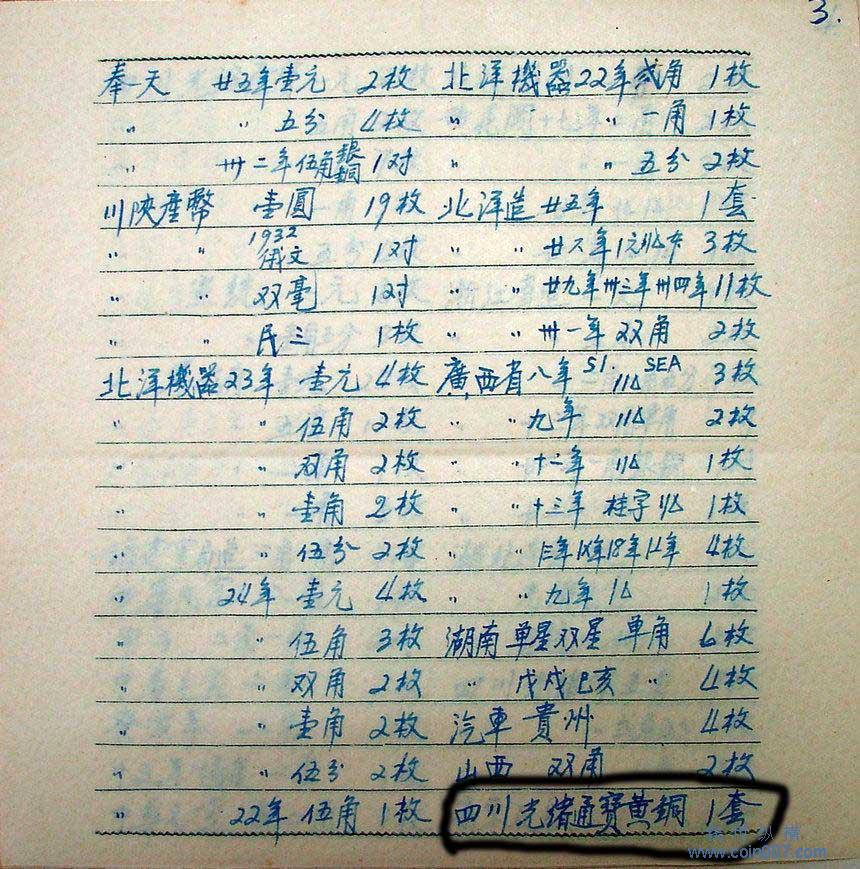 3.
奉天 廿五年壹元 2枚 北洋機器22年弍角 1枚
〃 〃 五分 4枚 〃 〃 一角 1枚
〃 卅二年伍角銀銅 1对 〃 〃 五分 2枚
川陝 幣 壹圓 19枚 北洋造 廿五年 1套
〃 〃 1932俄文 1对 〃 〃 廿六年 3枚
〃 〃 双毫 1对 〃 〃 廿九年卅三年卅四年 11枚
〃 〃 民三 1枚 〃 〃 卅一年 双角 2枚
北洋機器23年 壹元 4枚 廣西省八年 SEA 3枚
〃 〃 伍角 2枚 〃 〃 九年 2枚
〃 〃 双角 2枚 〃 〃 十二年 1枚
〃 〃 壹角 2枚 〃 〃 十三年 桂字 1枚
〃 〃 伍分 2枚 〃 〃 18年 4枚
〃 24年 壹元 4枚 〃 〃 九年 1枚
〃 〃 伍角 3枚 湖南 单星双星 单角 6枚
〃 〃 双角 2枚 〃 戊戌已亥 〃 4枚
〃 〃 壹角 2枚 汽車 貴州 4枚
〃 〃 伍分 2枚 山西 双角 2枚
〃 22年 伍角 1枚 四川光緒通寶黄銅 1套
www.coin007.com